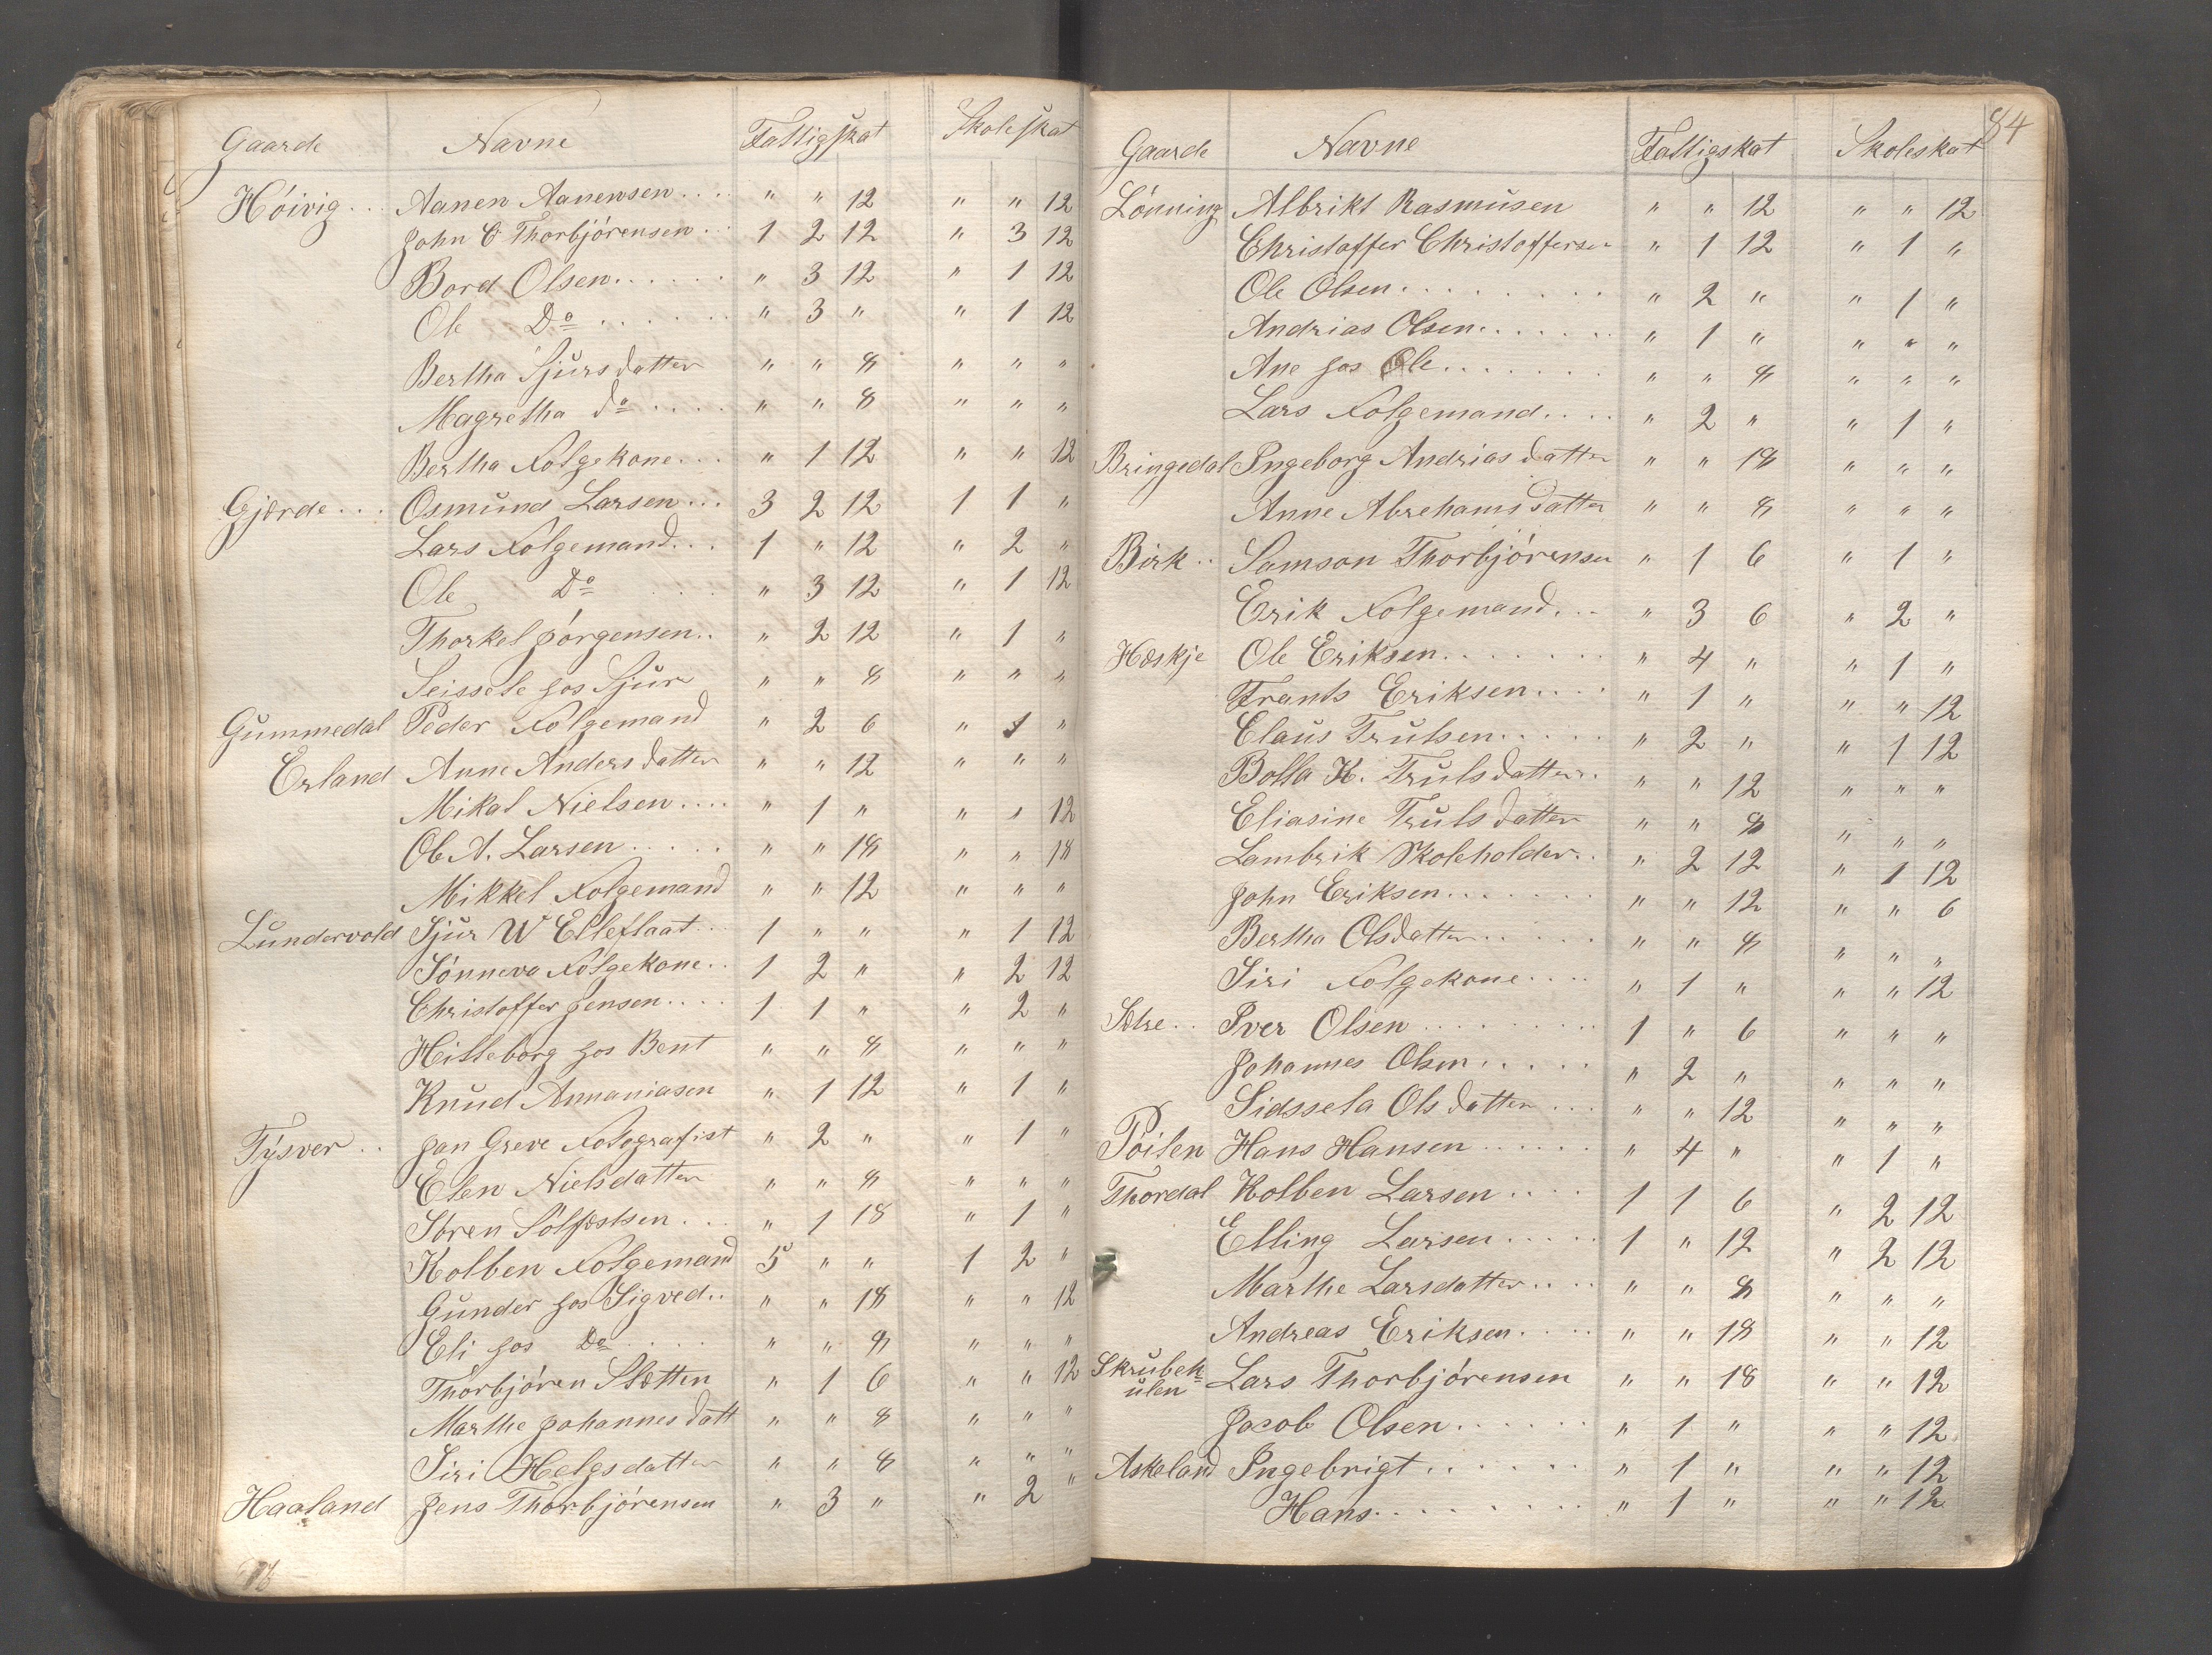 Gaarde Navne Fattigskat Skoleskat
Höivig... Aanen Aanensen.... " " 12 " " 12
John C Thorbjörensen.. 1 2 12 " 3 12
Bord Olsen...... " 3 12 " 1 12
Ole Do...... " 3 " " 1 12
Bertha Sjursdatter " " 8 " " "
Magretha do.... " " 8 " " "
Bertha Folgekone... " 1 12 " " 12
Gjerde... Osmund Larsen... 3 2 12 1 1 "
Lars Folgemand... 1 " 12 " 2 "
Ole Do " 3 12 " 1 12
Thorkel Jörgensen.. " 2 12 " 1 "
Seissele hos Sjur " " 8 " " "
Gummedal Peder Folgemand " 2 6 " 1 "
Erland Anne Andersdatter " " 12 " " "
Mikal Nielsen.... " 1 " " " 12
Ole A. Larsen..... " " 18 " " 18
Mikkel Folgemand " " 12 " " "
Lundervold Sjur W Elleflaat.. 1 " " " 1 12
Sönneva Folgekone.. 1 2 " " 2 12
Christoffer Jensen.... 1 1 " " 2 "
Hilleborg hos Bent " " 8 " " "
Knud Annaniasen " 1 12 " 1 "
Tysver.. Jan Greve Fotografist " 2 " " 1 "
Elen Nielsdatter " " 8 " " "
Sören Sölfestsen... " 1 18 " 1 "
Kolben Folgemand 5 " " 1 2 "
Gunder hos Sigved.. " " 18 " " 12
Eli hos Do " " 8 " " "
Thorbjören Sletten " 1 6 " " 12
Marthe Johannesdatt " " 8 " " "
Siri Helgsdatter " " 8 " " "
Haaland Jens Thorbjörensen " 3 " " 2 "
84
Gaarde Navne Fattigskat Skoleskat
Lönning Albrikt Rasmusen " " 12 " " 12
Christoffer Christoffersen " 1 12 " 1 "
Ole Olsen......... " 2 " " 1 "
Andrias Olsen...... " 1 " " " "
Ane hos Ole....... " " 8 " " "
Lars Folgemand.... " 2 " " 1 "
Bringedal Ingeborg Andriasdatter " " 18 " " "
Anne Abrehamsdatter " " 8 " " "
Birk.. Samson Thorbjörensen " 1 6 " 1 "
Erik Folgemand... " 3 6 " 2 "
Heskje Ole Eriksen....... " 4 " " 1 "
Frants Eriksen.... " 1 " " " 12
Claus Trulsen..... " 2 " " 1 12
Bolla K. Trulsdatter. " " 12 " " "
Eliasine Trulsdatter " " 8 " " "
Lambrik Skoleholder.. " 2 12 " 1 12
John Eriksen....... " " 12 " " 6
Bertha Olsdatter..... " " 8 " " "
Siri Folgekone.... " 1 " " " 12
Selre.. Iver Olsen......... 1 " 6 " " "
Johannes Olsen..... " 2 " " " "
Sidssela Olsdatter... " " 12 " " "
Poilen Hans Hansen...... " 4 " " 1 "
Thordal Kolben Larsen.... 1 1 6 " 2 12
Elling Larsen..... 1 " 12 " 2 12
Marthe Larsdatter.... " " 8 " " "
Andreas Eriksen.... " " 18 " " 12
Skrubek=
ulen Lars Thorbjörensen " " 18 " " 12
Jacob Olsen...... " 1 " " " 12
Askeland Ingebrigt...... " 1 " " " 12
Hans......... " 1 " " " 12